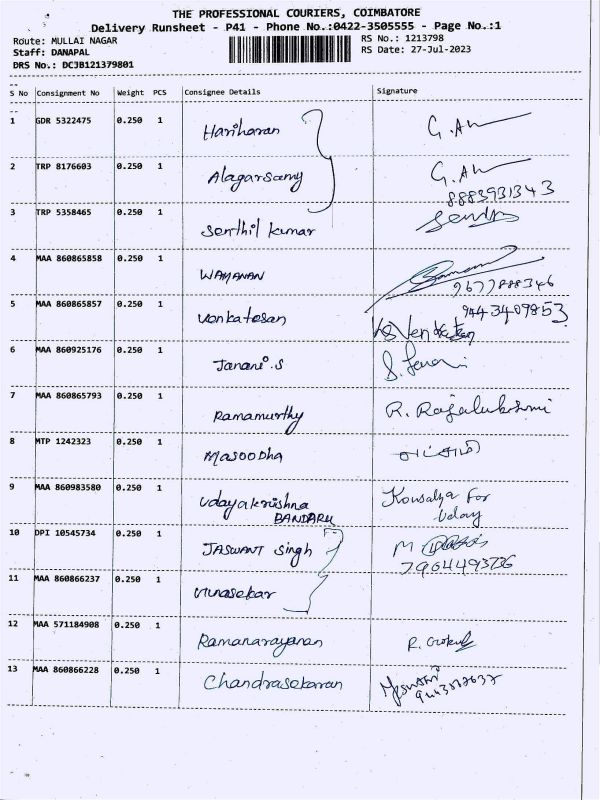 THE PROFESSIONAL COURIERS, COIMBATORE
Delivery Runsheet - P41 - Phone No.:0422-3505555 - Page No.:1
Route: MULLAI NAGAR
RS No.: 1213798
Staff: DANAPAL
RS Date: 27-Jul-2023
DRS No.: DCJB121379801
S No Consignment No Weight PCS Consignee Details Signature
1 GDR 5322475 0.250 1 Hariharan G. A
2 TRP 8176603 0.250 1 Alagarsamy G. A
8883931343
3 TRP 5358465 0.250 1 Senthil kumar
4 MAA 860865858 0.250 1 WAMANAN
9677888346
5 MAA 860865857 0.250 1 Venkatesan
9443409853
6 MAA 860925176 0.250 1 Janani.S
7 MAA 860865793 0.250 1 Ramamurthy R. Rajalukshmi
8 MTP 1242323 0.250 1 MASOODHA
9 MAA 860983580 0.250 1 Udayakrishna BANDARU Kousalya For
Uday
10 DPI 10545734 0.250 1 JASWANT Singh M
11 MAA 860866237 0.250 1
12 MAA 571184908 0.250 1 Ramanarayanan R. Gokul
13 MAA 860866228 0.250 1 Chandrasekaran